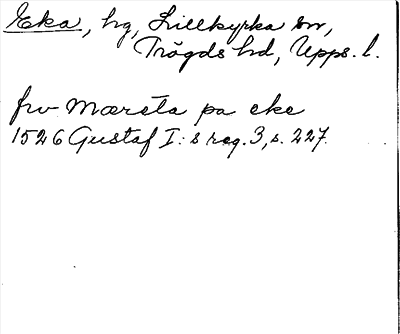 Eka, hg, Lillkyrka sn,
Trögds hd, Upps. l.
fru Mæreta pa eke
1526 Gustaf I:s reg. 3, s. 227.